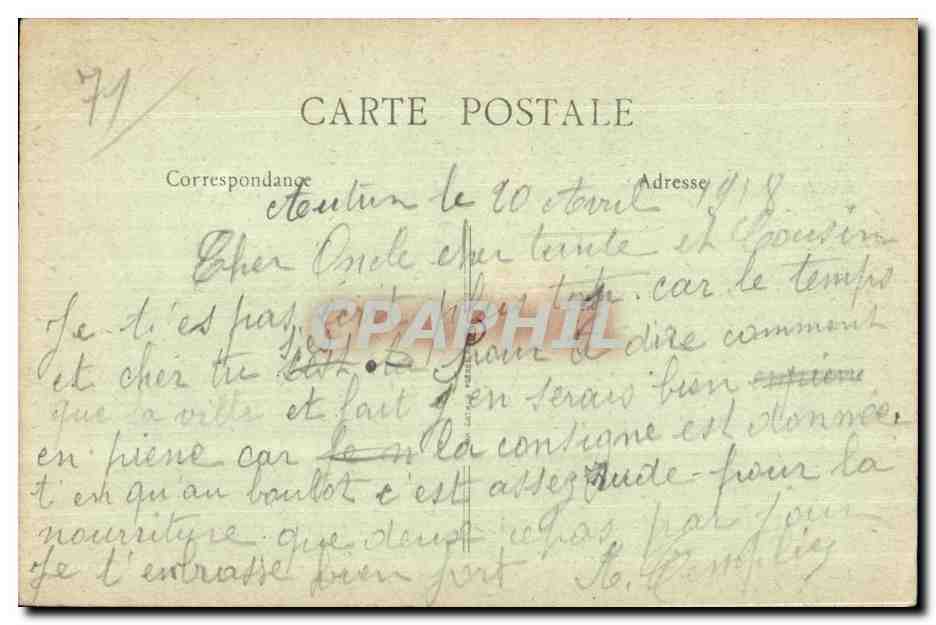 71
CARTE POSTALE
Correspondance
Adresse
Autun le 20 Avril 1918
Cher Oncle cher tante et Cousin
Je t'es pas écrit plus tôt car le temps
et cher tu pour te dire comment
que la ville et fait j'en serais bien
en piene car la consigne est donnée.
t'en qu'au boulot c'est assez rude pour la
nourriture que deux repas par jour
Je t'embrasse bien fort A.
CPAPHIL